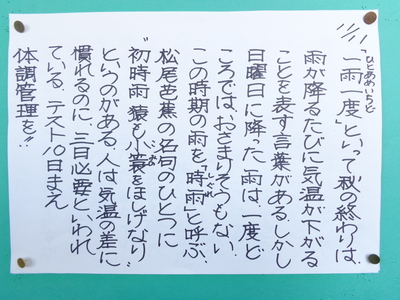 11/11
"一雨一度"といって秋の終わりは、
ひとあめいちど
雨が降るたびに気温が下がる
ことを表す言葉がある。しかし
日曜日に降った雨は、一度ど
ころではおさまりそうもない。
この時期の雨を、"時雨"と呼ぶ、
しぐれ
松尾芭蕉の名句のひとつに
"初時雨 猿も小蓑をほしげなり"
こみの
というのがある。人は気温の差に
慣れるのに、三日必要といわれ
ている。テスト10日まえ
体調管理を!!